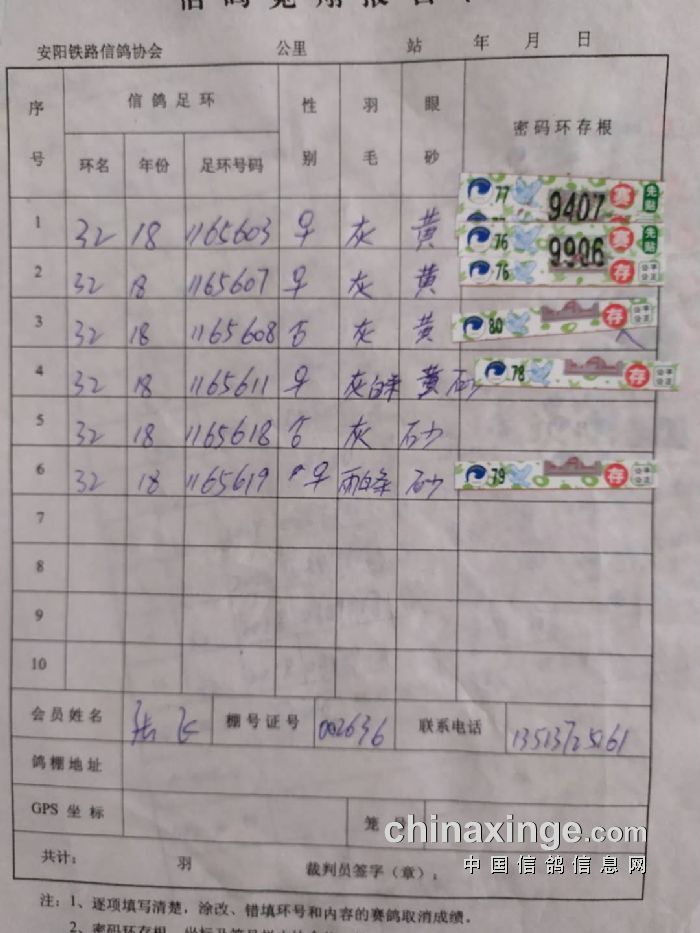 信鸽竞翔报告
安阳铁路信鸽协会 公里 站 年 月 日
序号 信鸽足环 性别 羽毛 眼砂 密码环存根
环名 年份 足环号码
77 9407 赛 先贴
1 32 18 1165603 早 灰 黄
76 9906 赛 先贴
76 存 公平公正
2 32 18 1165607 早 灰 黄
3 32 18 1165608 否 灰 黄 80 存 公平公正
4 32 18 1165611 早 灰白条 黄砂 78 存 公平公正
5 32 18 1165618 否 灰 砂
6 32 18 1165619 早 雨白条 砂 79 存 公平公正
7
8
9
10
会员姓名 张飞 棚号证号 002636 联系电话
鸽棚地址
GPS 坐标 笼
chinaxinge.com
中国信鸽信息网
共计: 羽 裁判员签字(章):
注:1、逐项填写清楚,涂改、错填环号和内容的赛鸽取消成绩。
2、密码环存根、坐标及